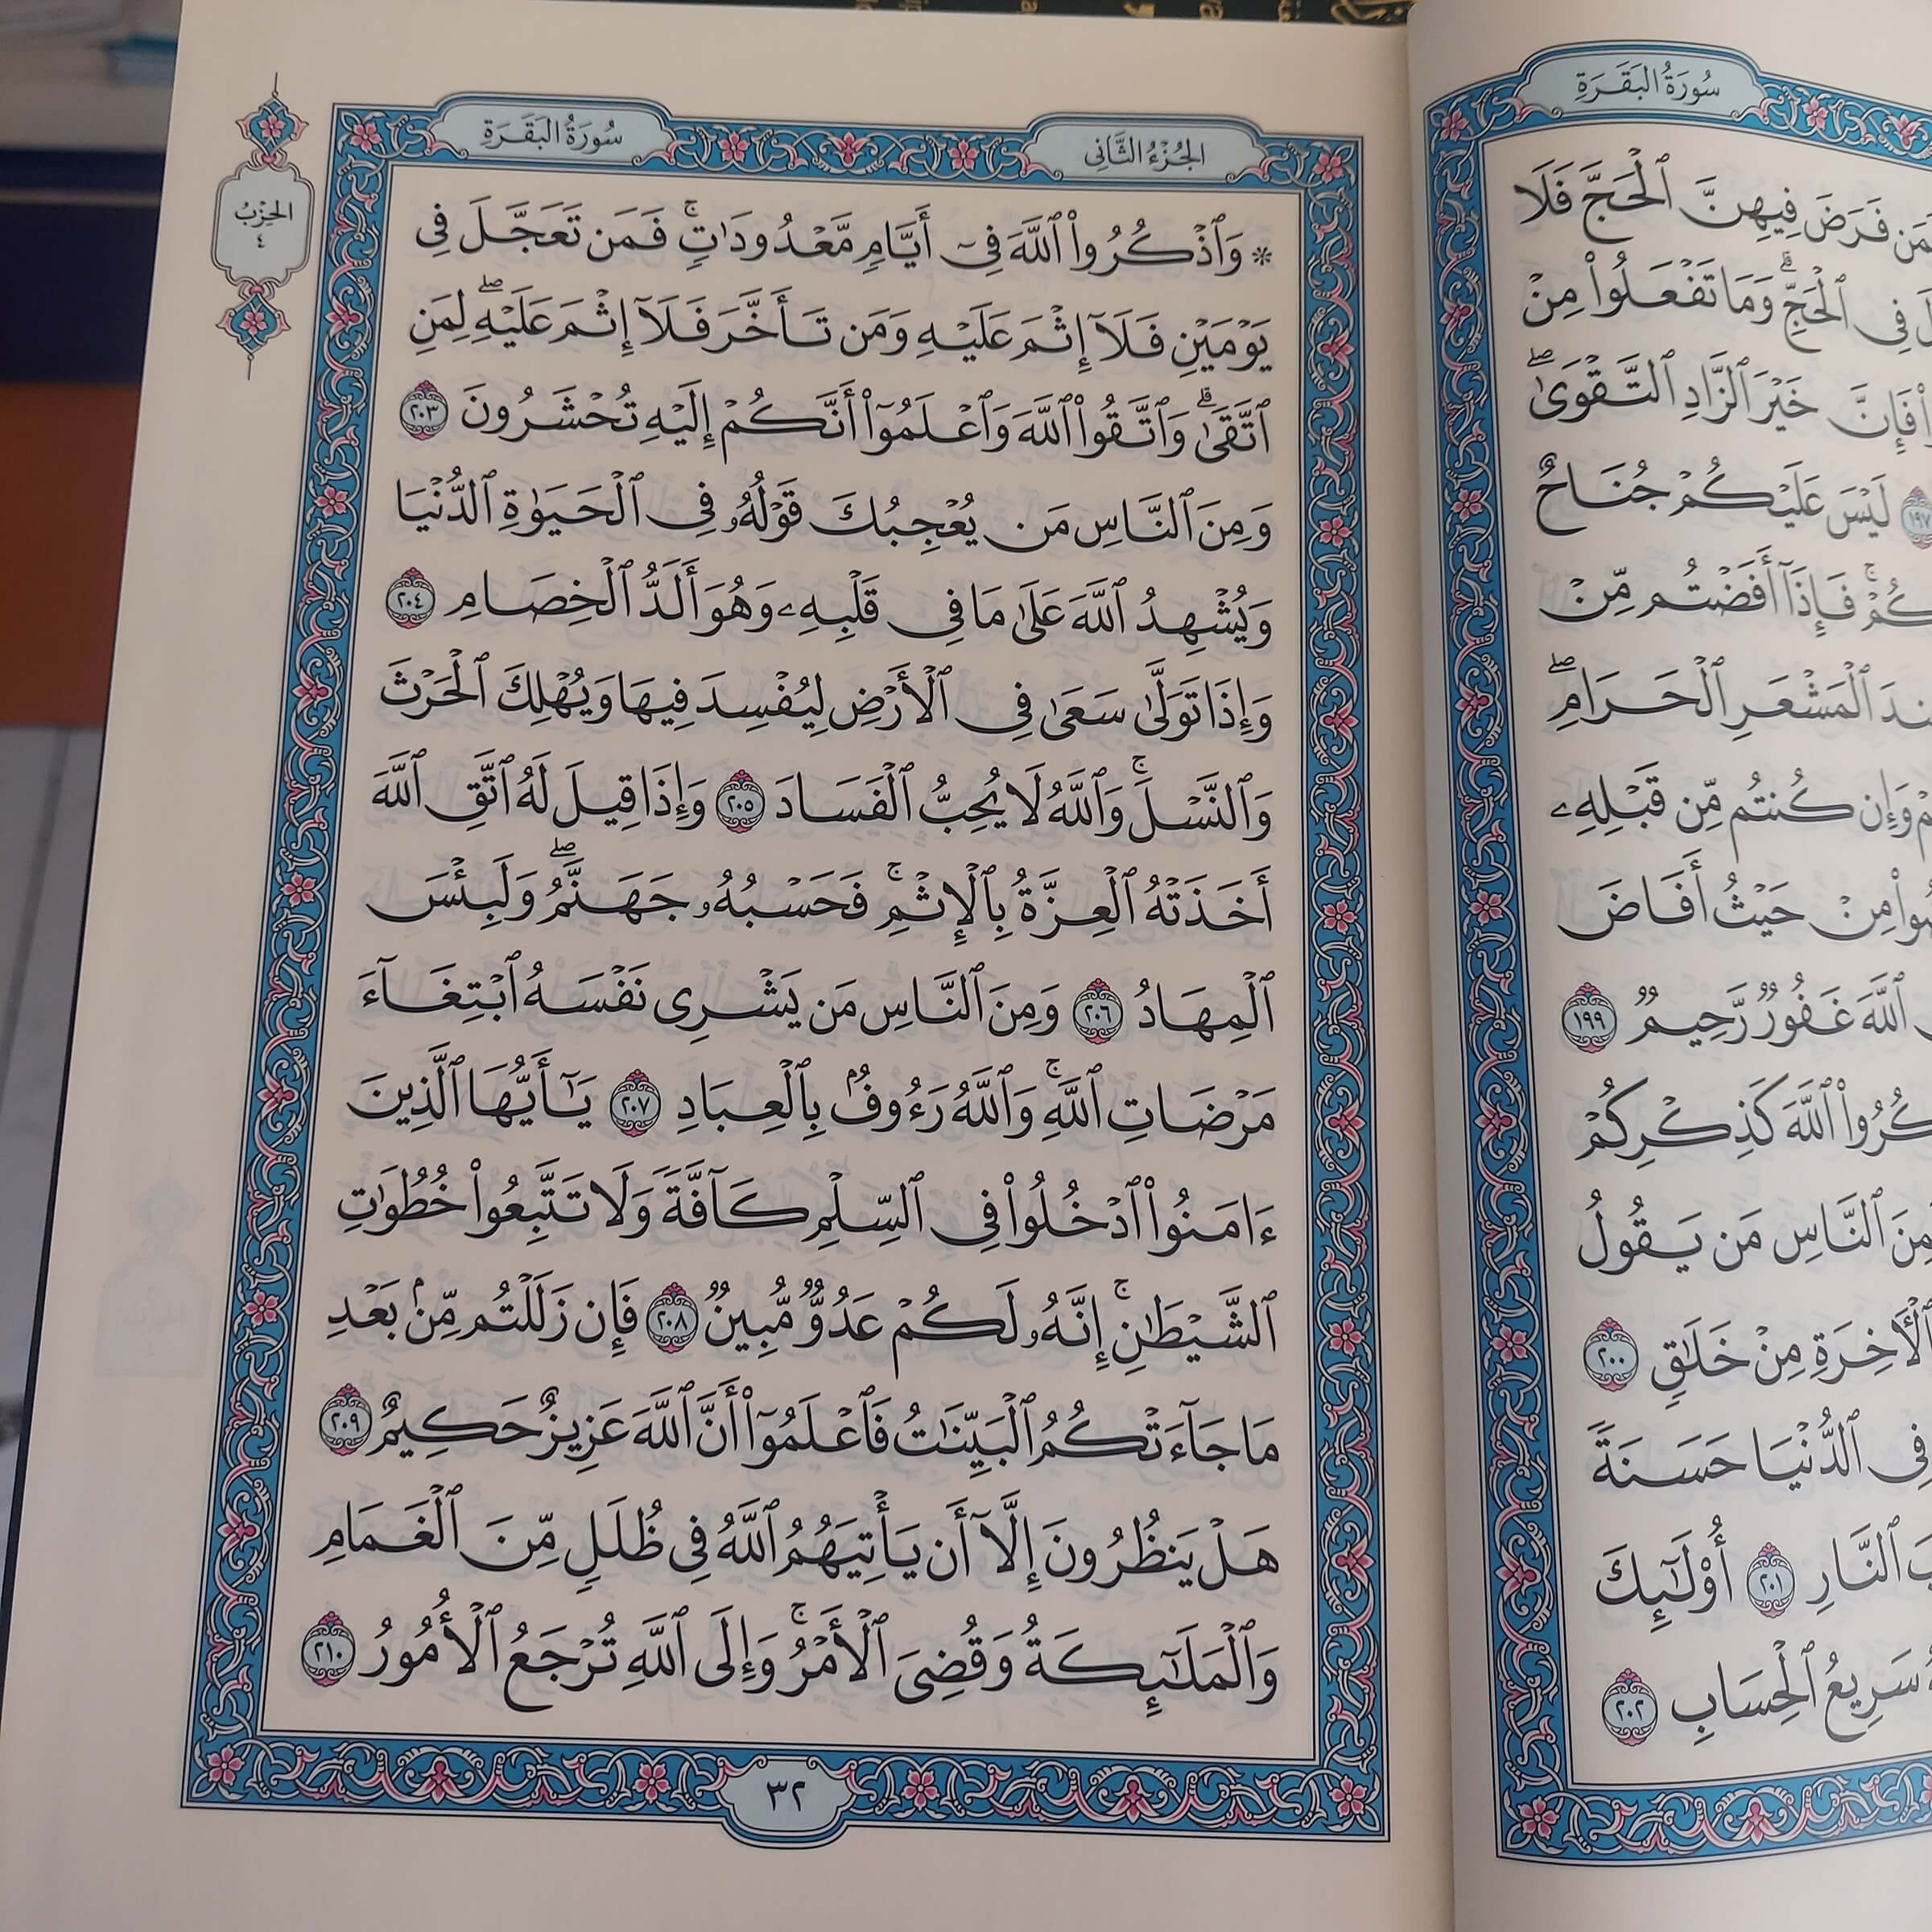 سُورَةُ البَقَرَةِ
مَن فَرَضَ فِيهِنَّ ٱلْحَجَّ فَلَا
فِى ٱلْحَجِّ ۗ وَمَا تَفْعَلُوا۟ مِنْ
فَإِنَّ خَيْرَ ٱلزَّادِ ٱلتَّقْوَىٰ ۖ
١٩٧ لَيْسَ عَلَيْكُمْ جُنَاحٌ
فَإِذَآ أَفَضْتُم مِّنْ
ٱلْمَشْعَرِ ٱلْحَرَامِ ۖ
وَإِن كُنتُم مِّن قَبْلِهِۦ
مِنْ حَيْثُ أَفَاضَ
ٱللَّهَ غَفُورٌ رَّحِيمٌ ١٩٩
ٱللَّهَ كَذِكْرِكُمْ
ٱلنَّاسِ مَن يَقُولُ
ٱلْـَٔاخِرَةِ مِنْ خَلَٰقٍ ٢٠٠
فِى ٱلدُّنْيَا حَسَنَةً
ٱلنَّارِ ٢٠١ أُو۟لَٰٓئِكَ
سَرِيعُ ٱلْحِسَابِ ٢٠٢
الجُزْءُ الثَّانِى
سُورَةُ البَقَرَةِ
الحِزْبُ
٤
* وَٱذْكُرُوا۟ ٱللَّهَ فِىٓ أَيَّامٍ مَّعْدُودَٰتٍ ۚ فَمَن تَعَجَّلَ فِى
يَوْمَيْنِ فَلَآ إِثْمَ عَلَيْهِ وَمَن تَأَخَّرَ فَلَآ إِثْمَ عَلَيْهِ ۖ لِمَنِ
ٱتَّقَىٰ ۗ وَٱتَّقُوا۟ ٱللَّهَ وَٱعْلَمُوٓا۟ أَنَّكُمْ إِلَيْهِ تُحْشَرُونَ ٢٠٣
وَمِنَ ٱلنَّاسِ مَن يُعْجِبُكَ قَوْلُهُۥ فِى ٱلْحَيَوٰةِ ٱلدُّنْيَا
وَيُشْهِدُ ٱللَّهَ عَلَىٰ مَا فِى قَلْبِهِۦ وَهُوَ أَلَدُّ ٱلْخِصَامِ ٢٠٤
وَإِذَا تَوَلَّىٰ سَعَىٰ فِى ٱلْأَرْضِ لِيُفْسِدَ فِيهَا وَيُهْلِكَ ٱلْحَرْثَ
وَٱلنَّسْلَ ۚ وَٱللَّهُ لَا يُحِبُّ ٱلْفَسَادَ ٢٠٥ وَإِذَا قِيلَ لَهُ ٱتَّقِ ٱللَّهَ
أَخَذَتْهُ ٱلْعِزَّةُ بِٱلْإِثْمِ ۚ فَحَسْبُهُۥ جَهَنَّمُ ۖ وَلَبِئْسَ
ٱلْمِهَادُ ٢٠٦ وَمِنَ ٱلنَّاسِ مَن يَشْرِى نَفْسَهُ ٱبْتِغَآءَ
مَرْضَاتِ ٱللَّهِ ۚ وَٱللَّهُ رَءُوفٌۢ بِٱلْعِبَادِ ٢٠٧ يَٰٓأَيُّهَا ٱلَّذِينَ
ءَامَنُوا۟ ٱدْخُلُوا۟ فِى ٱلسِّلْمِ كَآفَّةً وَلَا تَتَّبِعُوا۟ خُطُوَٰتِ
ٱلشَّيْطَٰنِ ۚ إِنَّهُۥ لَكُمْ عَدُوٌّ مُّبِينٌ ٢٠٨ فَإِن زَلَلْتُم مِّنۢ بَعْدِ
مَا جَآءَتْكُمُ ٱلْبَيِّنَٰتُ فَٱعْلَمُوٓا۟ أَنَّ ٱللَّهَ عَزِيزٌ حَكِيمٌ ٢٠٩
هَلْ يَنظُرُونَ إِلَّآ أَن يَأْتِيَهُمُ ٱللَّهُ فِى ظُلَلٍ مِّنَ ٱلْغَمَامِ
وَٱلْمَلَٰٓئِكَةُ وَقُضِىَ ٱلْأَمْرُ ۚ وَإِلَى ٱللَّهِ تُرْجَعُ ٱلْأُمُورُ ٢١٠
٣٢